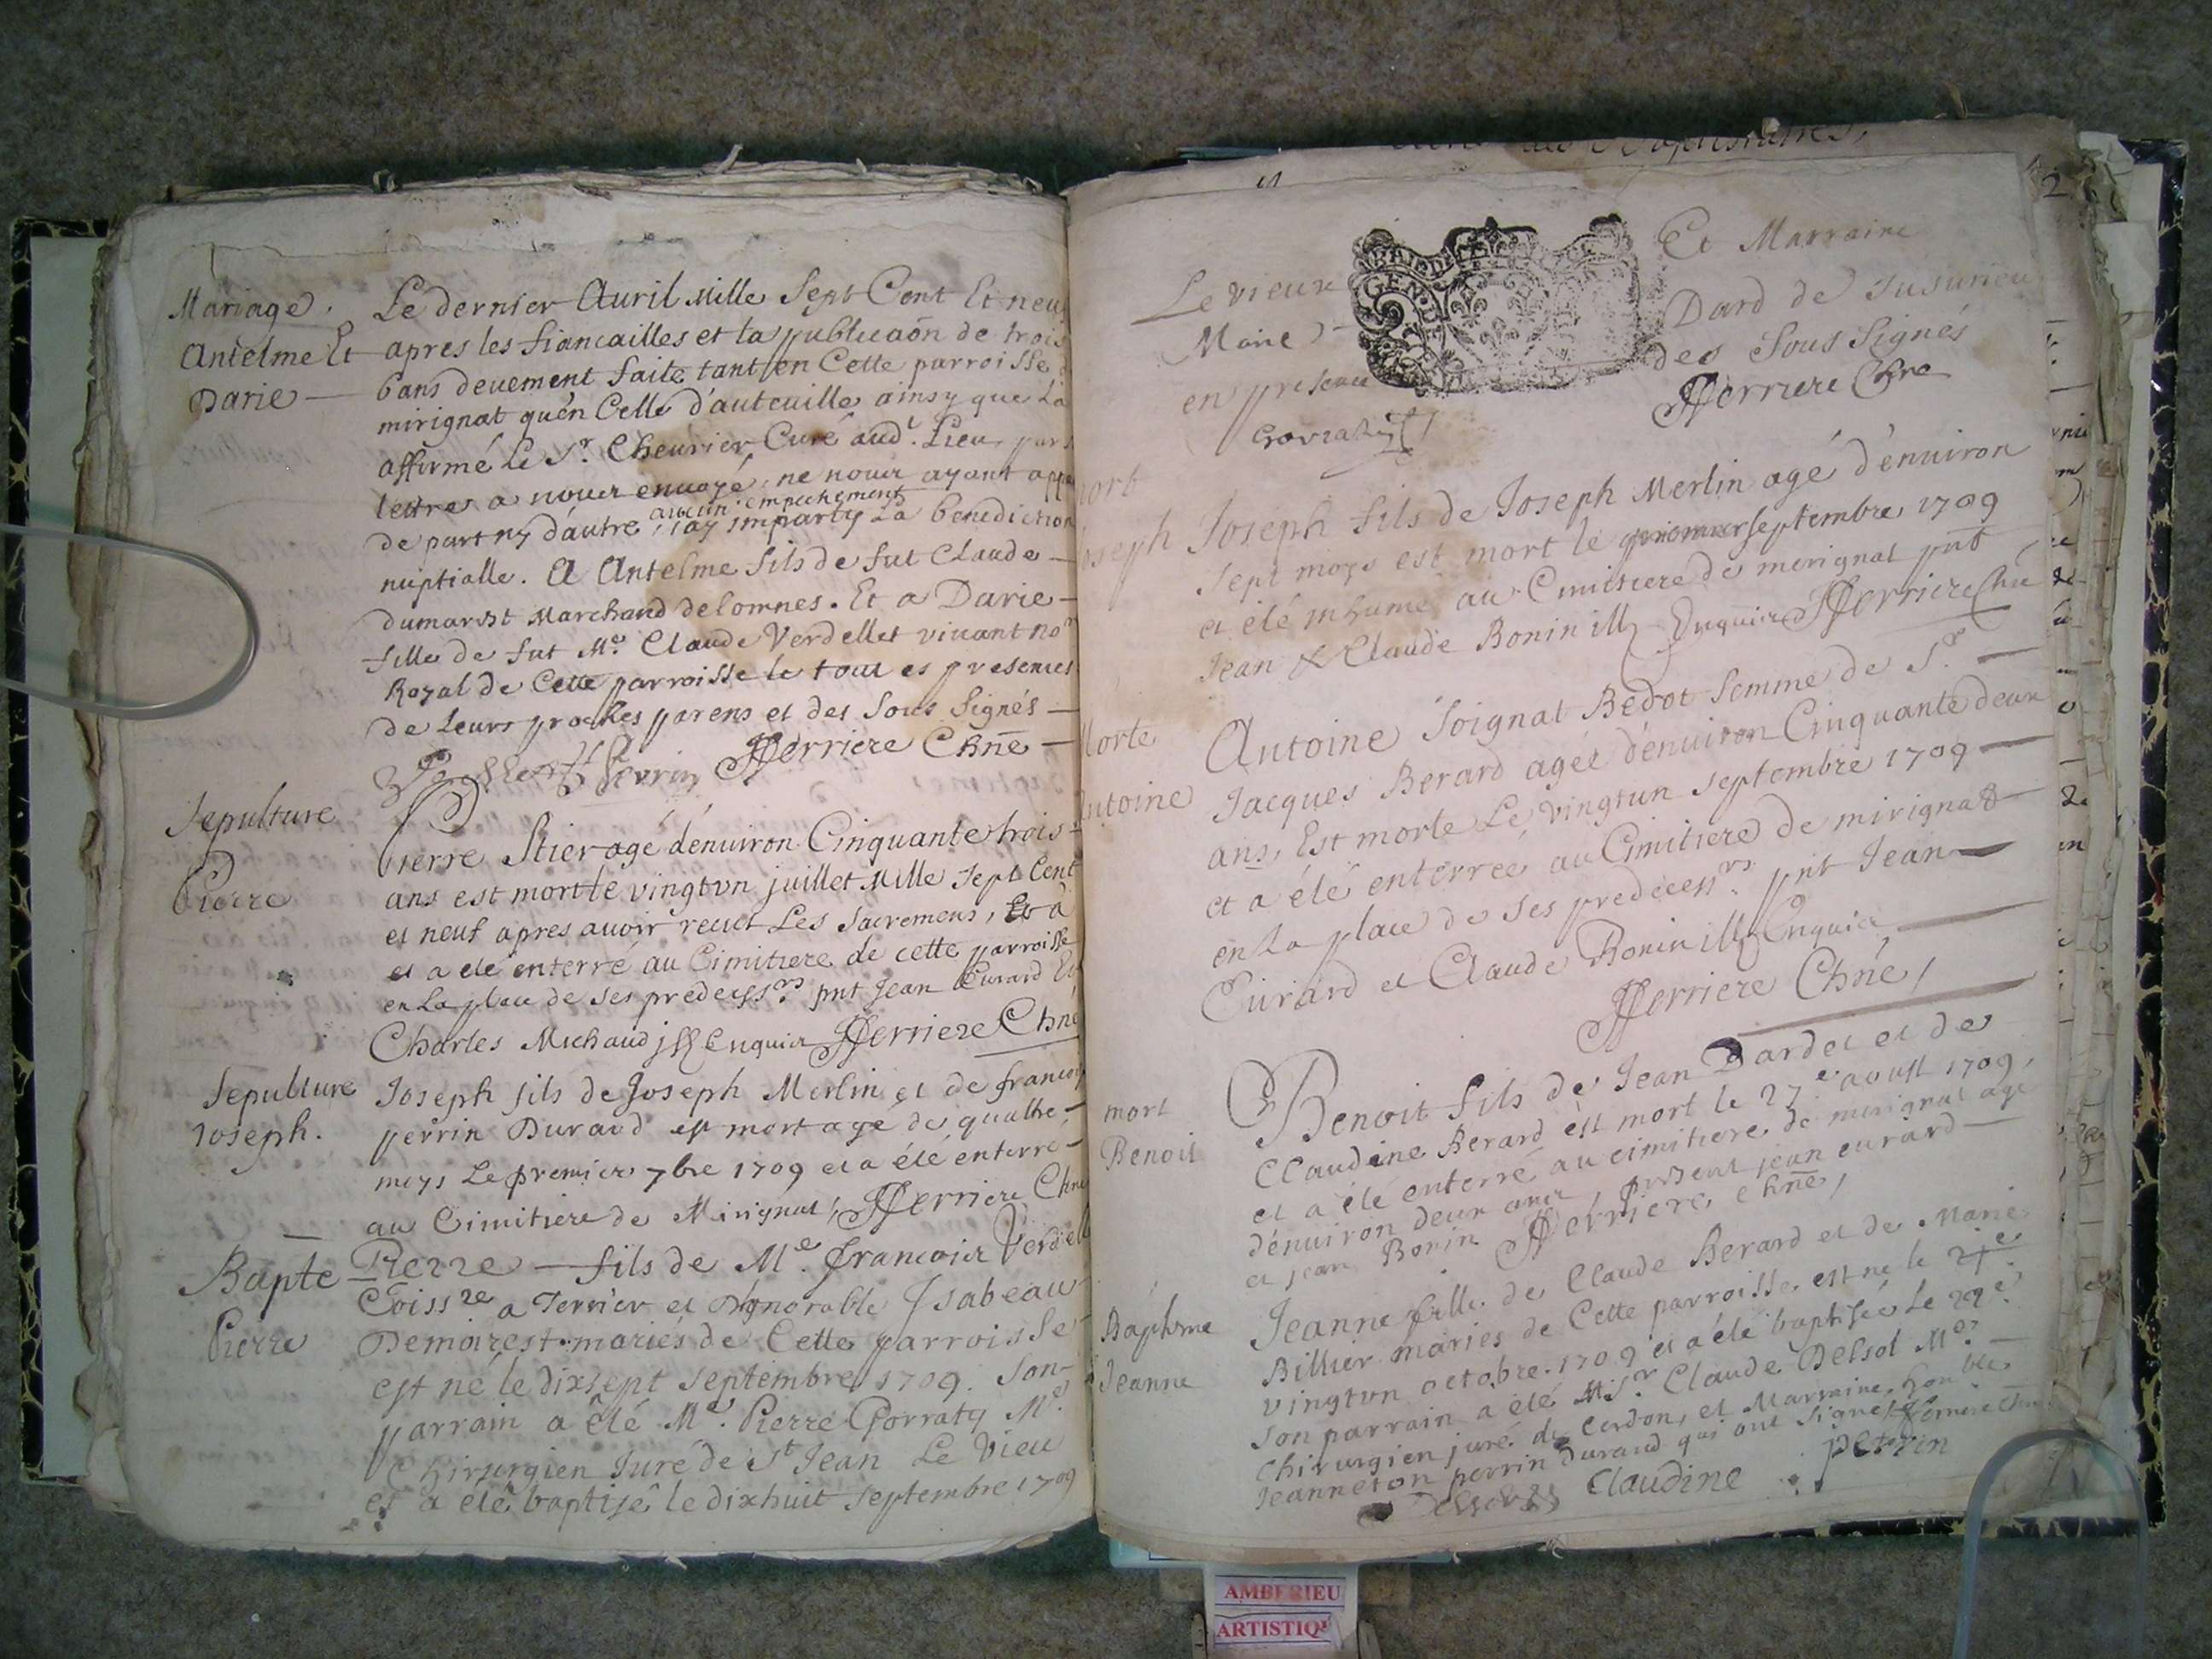 Mariage.
Antelme Et
Darie
Le dernier Auril Mille Sept Cent Et neuf
apres les fiancailles et la publicaõn de trois
bans deuement faite tant en Cette parroisse
mirignat qu'en Celle d'auteuille ainsy que La
affirmé le Sr. Cheurier Curé audt. Lieu par
lettres a nous enuoyé, ne nous ayant
aucun empechement
de part ny d'autre, j'ay imparty La benediction
nuptialle. A Antelme fils de fut Claude
dumarest Marchand delomnes. Et a Darie
fille de fut Me. Claude Verdellet viuant nore
Royal de Cette parroisse le tout es presences
de Leurs proches parens et des Sous Signés
Perrin Fferriere Chne
Sepulture
Pierre
Pierre Stier agé d'enuiron Cinquante trois
ans est mort le vingtvn juillet Mille Sept Cent
et neuf apres auoir receut Les Sacremens, Et a
et a eté enterré au Cimitiere de cette parroisse
en La place de ses predecessrs pnt Jean Eurard Et
Charles Michaud ill Enquis Fferriere Chne
Sepulture
Joseph.
Joseph fils de Joseph Merlin et de francois
perrin Durand est mort agé de quattre
moys Le premier 7bre 1709 et a été enterré
au Cimitiere de Mirignat, Fferriere Chne
Bapte
Pierre
Pierre fils de Me. francois Verdell
Coissre a Terrier et Honorable Isabeau
Demarest mariés de Cette parroisse
est né le dixsept Septembre 1709. Son
parrain a été Me. Pierre Gorraty Me.
Chirurgien Juré de St Jean Le Vieu
et a été baptisé le dixhuit Septembre 1709
2
Le vieux
Marie
en presence
Gorraty
GEN
Et Marraine
Dard de Jusurieu
des Sous Signés
Fferriere Chne
mort
Joseph
Joseph fils de Joseph Merlin agé d'enuiron
Sept moys est mort le premier septembre 1709
et été inhumé au Cimitiere de merignat pnt
Jean & Claude Bonin ill Enquis Fferriere Chne
Morte
Antoine
Antoine Soignat Bedot femme de Sr.
Jacques Berard ageé d'enuiron Cinquante deux
ans, Est morte Le vingtun septembre 1709
et a été enterreé au Cimitiere de mirignat
en La place de ses predecessrs. pnt Jean
Eurard et Claude Bonin ill Enquis
Fferriere Chne,
mort
Benoit
Benoit fils de Jean Dardet et de
Claudine Berard est mort le 27e aoust 1709,
et a été enterré au cimitiere de merignat agé
d'enuiron deux ans, present jean eurard
et jean Bonin Fferriere, chne,
Baptême
Jeanne
Jeanne fille de Claude Berard et de Marie
Billier mariés de Cette parroisse est né le 21e
vingtvn octobre 1709 et a été baptisée Le 29e
Son parrain a été Sr Claude Delsol Me.
Chirurgien juré de Cerdon, et Marraine honble
Jeanneton perrin Durand qui ont Signé, Fferriere Chne
Claudine perrin
AMBERIEU
ARTISTIQU